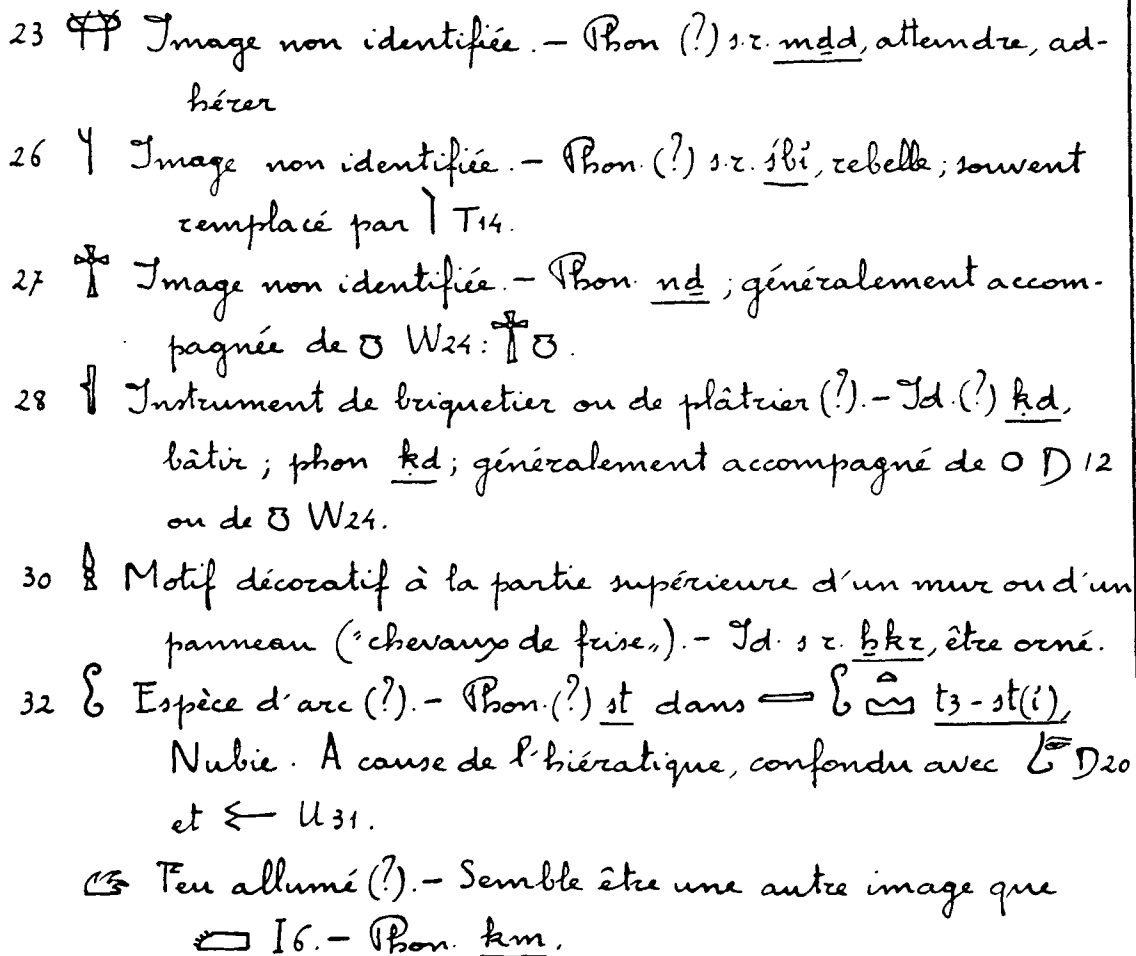 23 𓐠 Image non identifiée. – Phon (?) s.r. mḏd, atteindre, ad-
hérer
26 Image non identifiée. – Phon. (?) s.r. śbi̓, rebelle; souvent
remplacé par 𓌙 T14.
27 𓐩 Image non identifiée. – Phon. nḏ ; généralement accom-
pagnée de 𓏌 W24: 𓐩𓏌.
28 𓐪 Instrument de briquetier ou de plâtrier (?). – Id. (?) ḳd,
bâtir ; phon ḳd; généralement accompagné de O D12
ou de 𓏌 W24.
30 𓐮 Motif décoratif à la partie supérieure d'un mur ou d'un
panneau ("chevaux de frise„). – Id. s r. ẖkr, être orné.
32 𓐰 Espèce d'arc (?). – Phon. (?) st dans 𓇾 𓐰 𓏏𓈉 t3-st(i),
Nubie. A cause de l'hiératique, confondu avec D20
et U31.
Feu allumé (?). – Semble être une autre image que
𓆎 I6. – Phon. km.